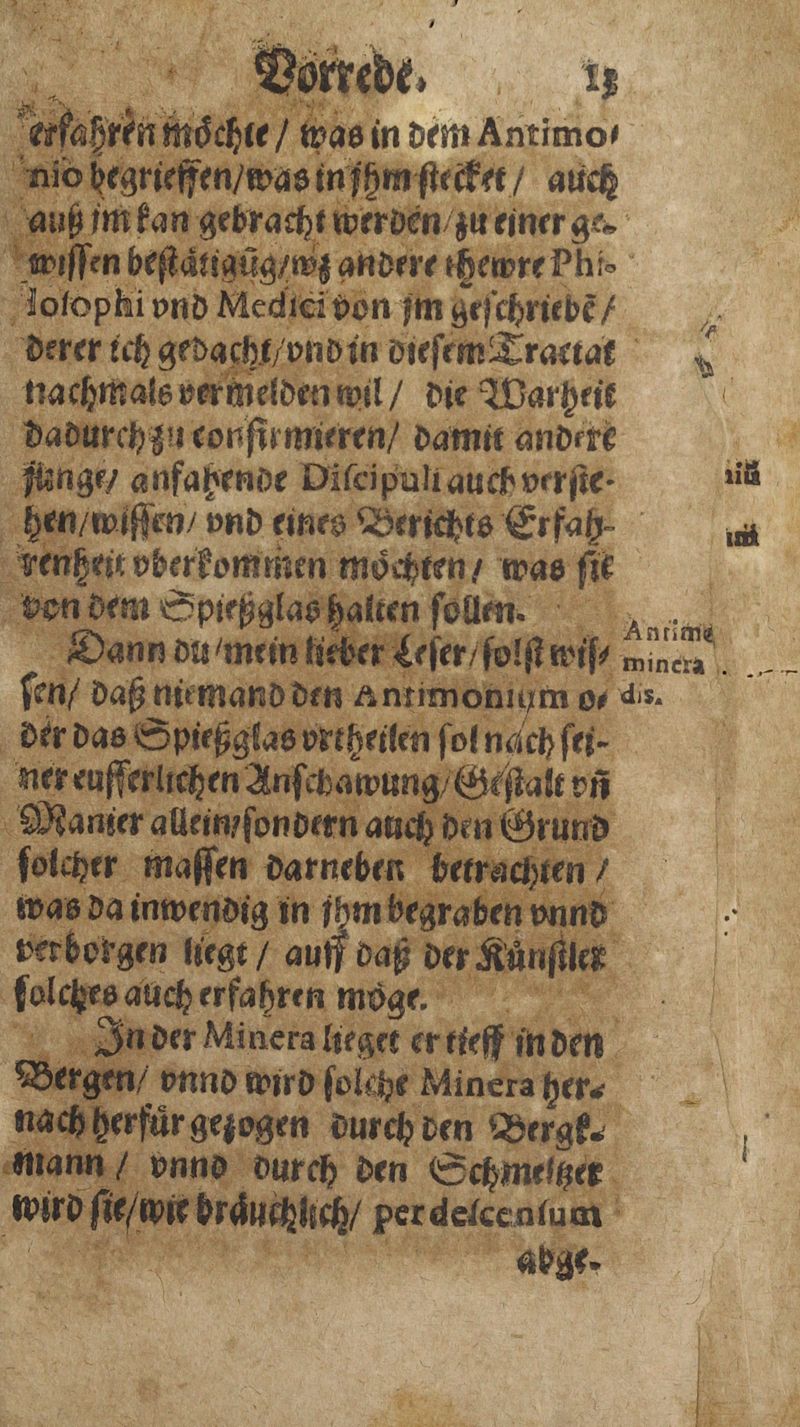 Vorrede. 13
erfahren möchte / was in dem Antimo-
nio begrieffen/was in jhm stecket / auch
auß jm kan gebracht werden/zu einer ge-
wissen bestätigũg/wz andere thewre Phi-
losophi vnd Medici von jm geschriebẽ /
derer ich gedacht/vnd in diesem Tractat
nachmals vermelden wil / die Warheit
dadurch zu confirmieren/ damit andere
junge/ anfahende Discipuli auch verste-
hen/wissen/ vnd eines Berichts Erfah-
renheit vberkommen möchten / was sie
von dem Spießglas halten sollen.
Dann du/mein lieber Leser/solst wis-
sen/ daß niemand den Antimonium o-
der das Spießglas vrtheilen sol nach sei-
ner eusserlichen Anschawung/Gestalt vñ
Manier allein/sondern auch den Grund
solcher massen darneben betrachten /
was da inwendig in jhm begraben vnnd
verborgen liegt / auff daß der Künstler
solches auch erfahren möge.
In der Minera lieget er tieff in den
Bergen/ vnnd wird solche Minera her-
nach herfür gezogen durch den Bergk-
mann / vnnd durch den Schmeltzer
wird sie/wie bräuchlich/ per descensum
abge-
Antimo
minera
dis.